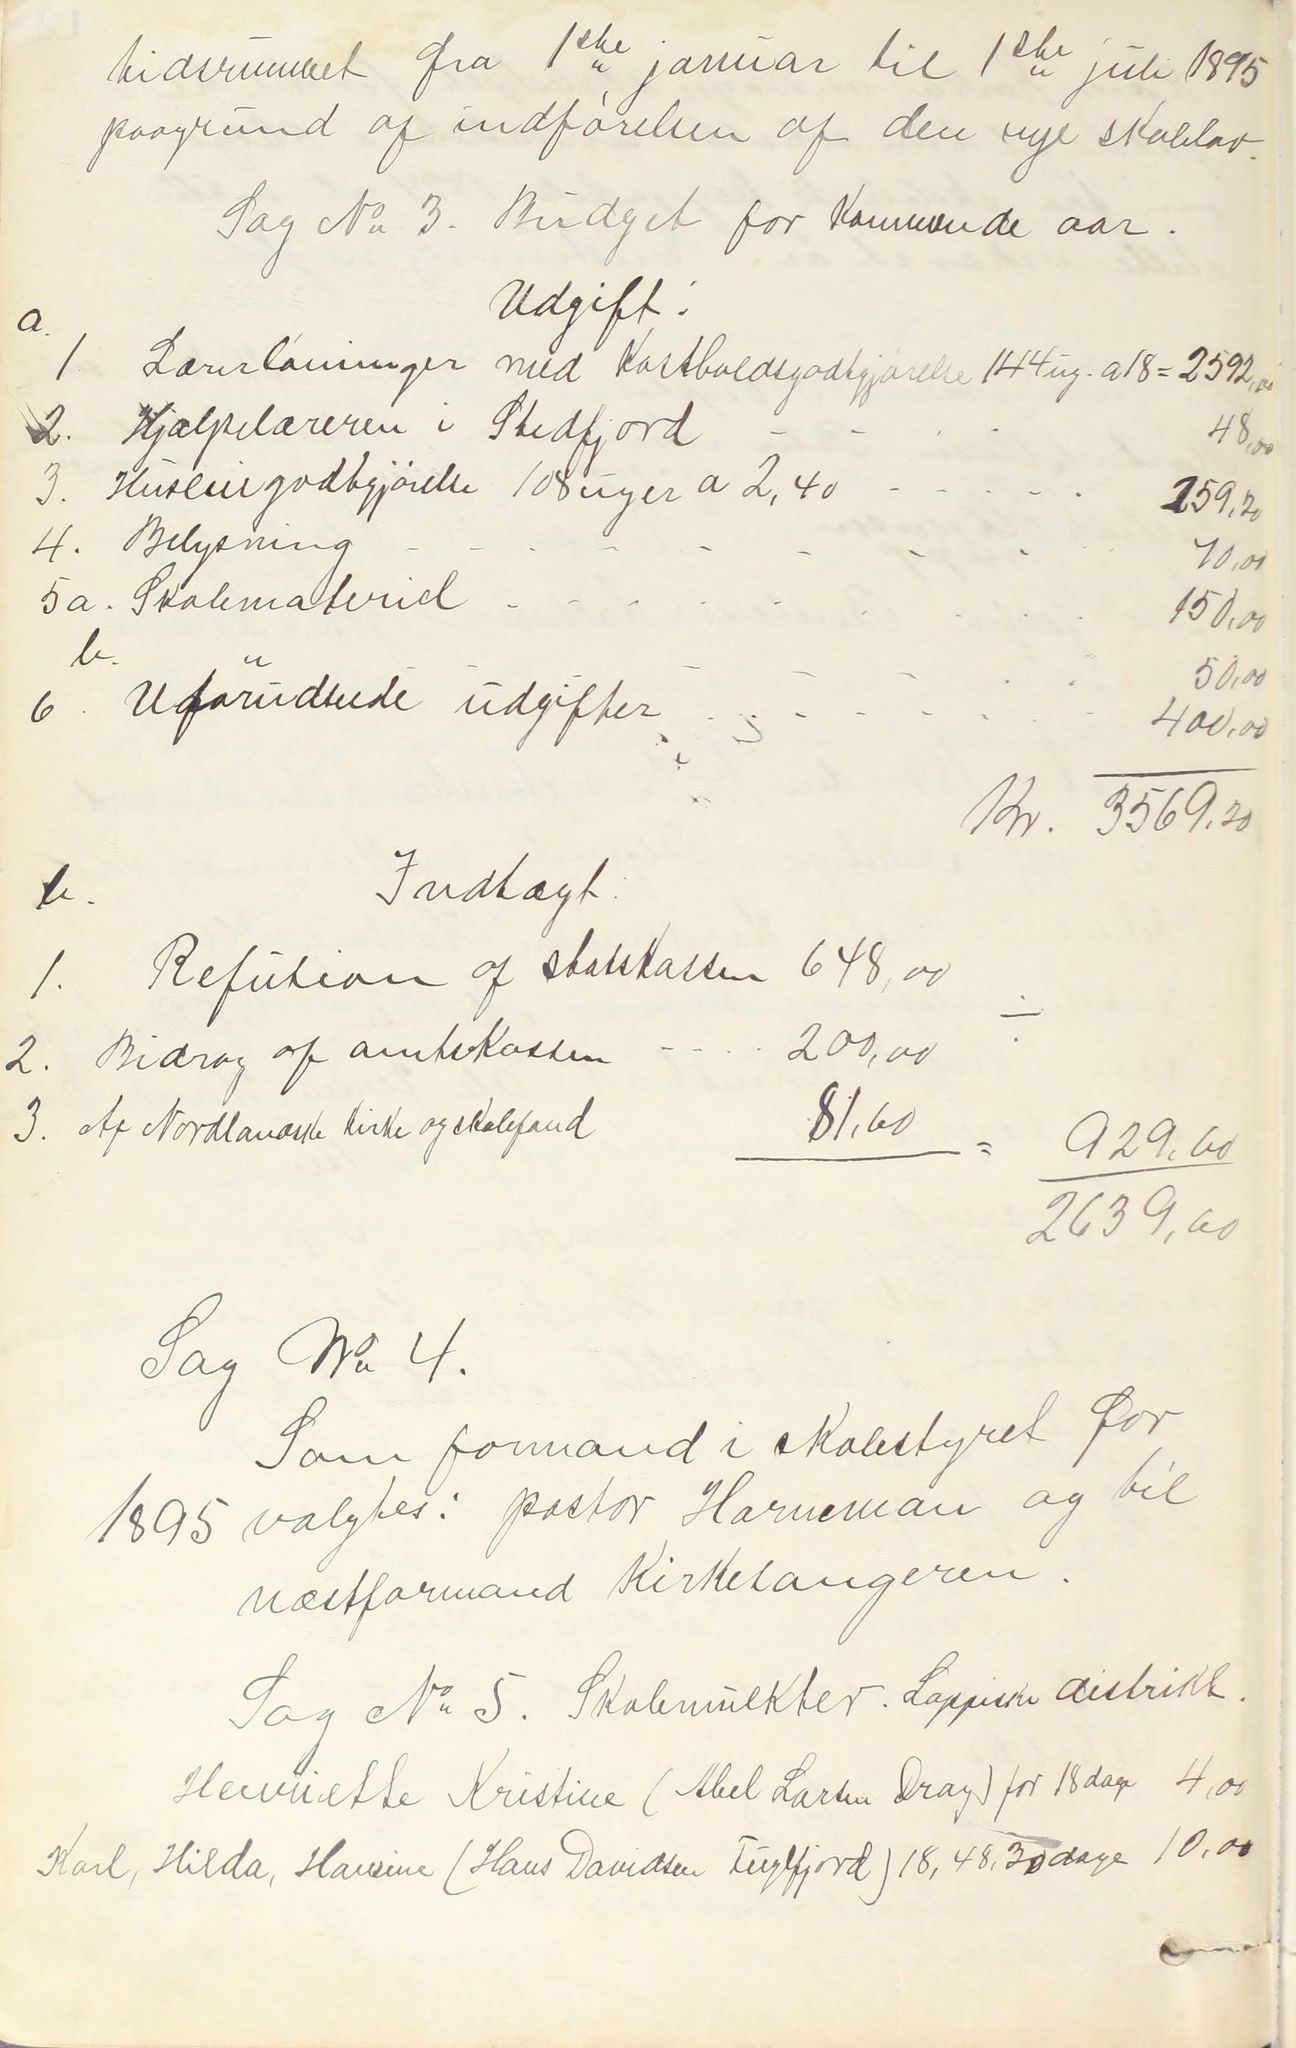 tidsrummet fra 1ste januar til 1ste juli 1895
paagrund af indførelsen af den nye skolelov.
Sag No 3. Budget for kommende aar.
a. Udgift:
1 Lærerlønninger med Kostholdsgodtgjørelse 144 ug. a 18 = 2592,00
2. Hjælpelæreren i Stedfjord - - - - 48,00
3. Husleiegodtgjørelse 108 uger a 2,40 - - - - - 259,20
4. Belysning - - - - - - - - 70,00
5a. Skolemateriel - - - - - - - - 150,00
b. " - - - - - 50,00
6. Uforudseede udgifter - - - - - - - 400,00
Kr. 3569,20
b. Indtægt:
1. Refution af statskassen 648,00 ÷
2. Bidrag af amtskassen - - - - 200,00
3. Af Nordlandske kirke og skolefond 81,60 = 929,60
2639,60
Sag No 4.
Som formand i skolestyret for
1895 valgtes: pastor Harneman og til
næstformand Kirkesangeren.
Sag No 5. Skolemulkter. Lappiske distrikt.
Henriette Kristine (Abel Larsen Drag) for 18 dage 4,00
Karl, Hilda, Hansine (Hans Davidsen Fuglfjord) 18, 48, 30 dage 10,00